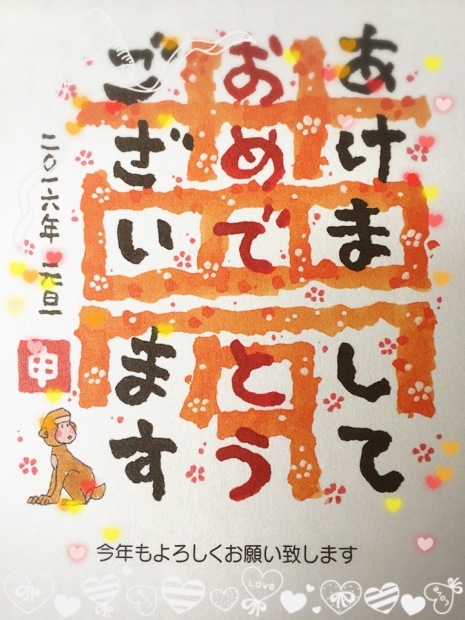 夢
あけまして
おめでとう
ございます
二〇一六年 元旦
申
今年もよろしくお願い致します
Love
Love